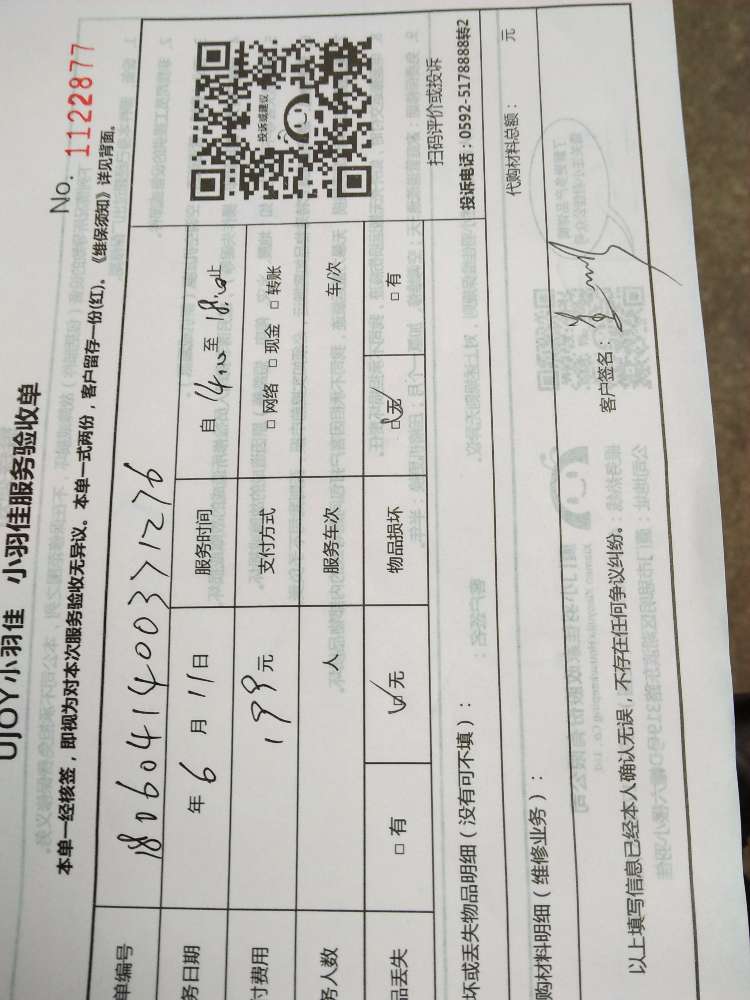 UJOY小羽佳 小羽佳服务验收单
No. 1122877
本单一经核签，即视为对本次服务验收无异议。本单一式两份，客户留存一份(红)。《维保须知》详见背面。
单编号 1806041400371276
务日期 年 6 月 11 日 服务时间 自 14:00 至 18:00 止
付费用 199 元 支付方式 □ 网络 □ 现金 □ 转账
务人数 人 服务车次 车/次
品丢失 □ 有 ☑ 无 物品损坏 ☑ 无 □ 有
投诉或建议
扫码评价或投诉
投诉电话：0592-5178888转2
坏或丢失物品明细（没有可不填）：
购材料明细（维修业务）： 代购材料总额： 元
以上填写信息已经本人确认无误，不存在任何争议纠纷。 客户签名：